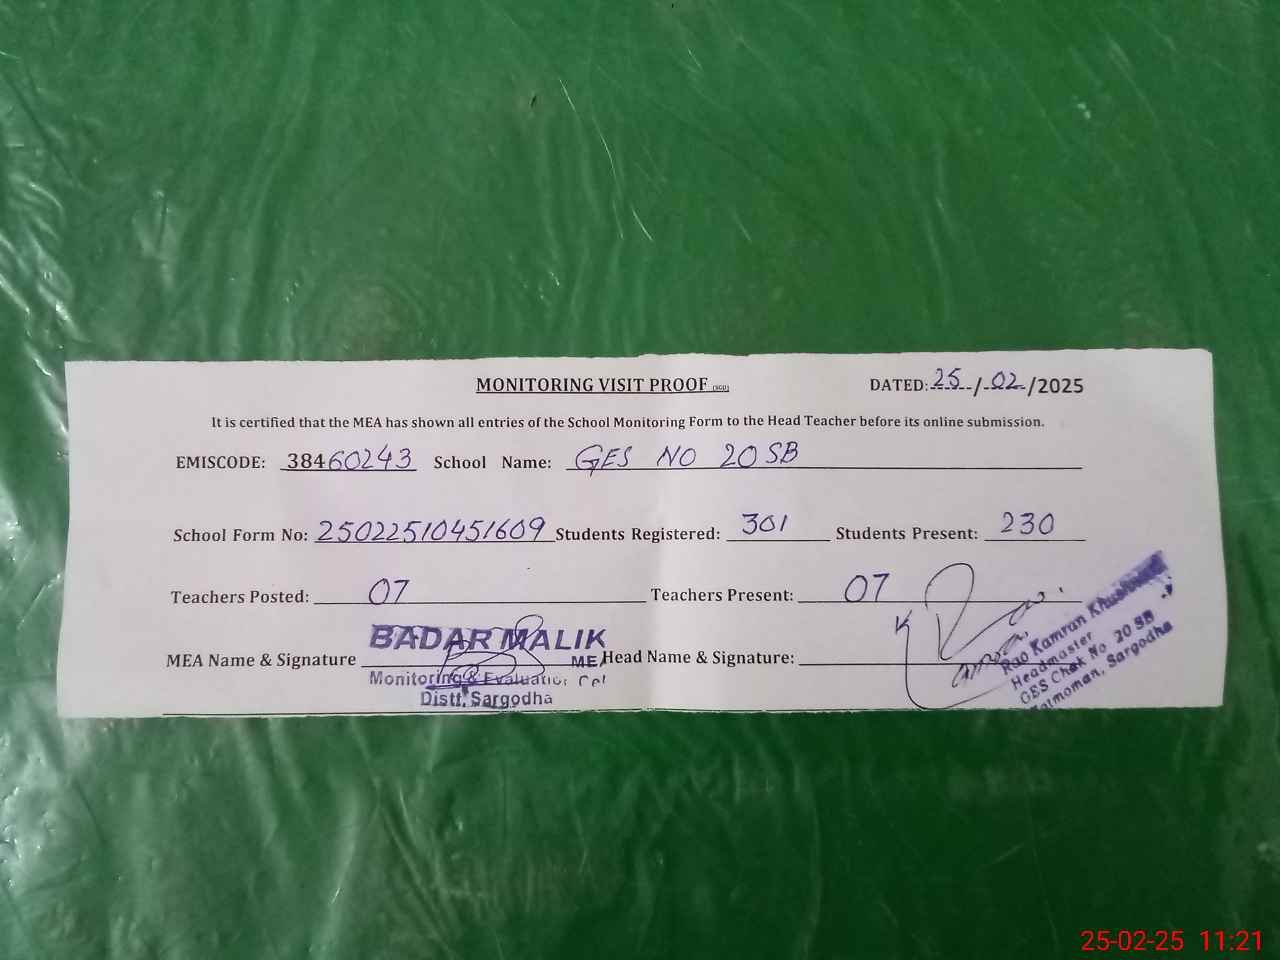 MONITORING VISIT PROOF (SGD) DATED: 25/02/2025
It is certified that the MEA has shown all entries of the School Monitoring Form to the Head Teacher before its online submission.
EMISCODE: 38460243 School Name: GES NO 20 SB
School Form No: 25022510451609 Students Registered: 301 Students Present: 230
Teachers Posted: 07 Teachers Present: 07
MEA Name & Signature Head Name & Signature:
BADAR MALIK
MEA
Monitoring & Evaluation Cel
Distt. Sargodha
Rao Kamran
Headmaster
GES Chak No 20 SB
Sargodha
25-02-25 11:21